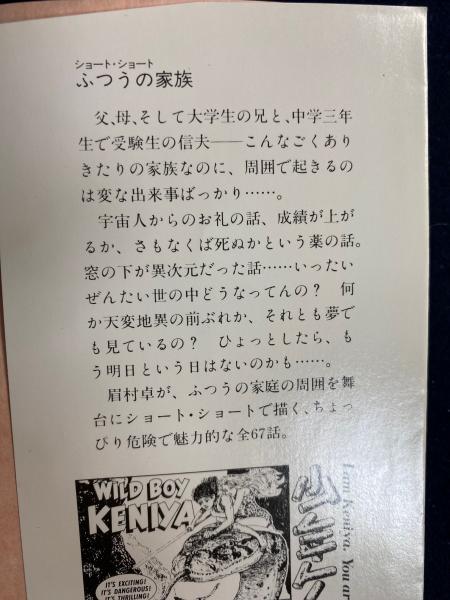 ショート・ショート
ふつうの家族
父、母、そして大学生の兄と、中学三年
生で受験生の信夫――こんなごくあり
きたりの家族なのに、周囲で起きるの
は変な出来事ばっかり……。
宇宙人からのお礼の話、成績が上が
るか、さもなくば死ぬかという薬の話。
窓の下が異次元だった話……いったい
ぜんたい世の中どうなってんの？　何
か天変地異の前ぶれか、それとも夢で
も見ているの？　ひょっとしたら、も
う明日という日はないのかも……。
眉村卓が、ふつうの家庭の周囲を舞
台にショート・ショートで描く、ちょっ
ぴり危険で魅力的な全67話。
WILD BOY
KENIYA
IT'S EXCITING!
IT'S DANGEROUS!
IT'S THRILLING!
I am keniya. You ar